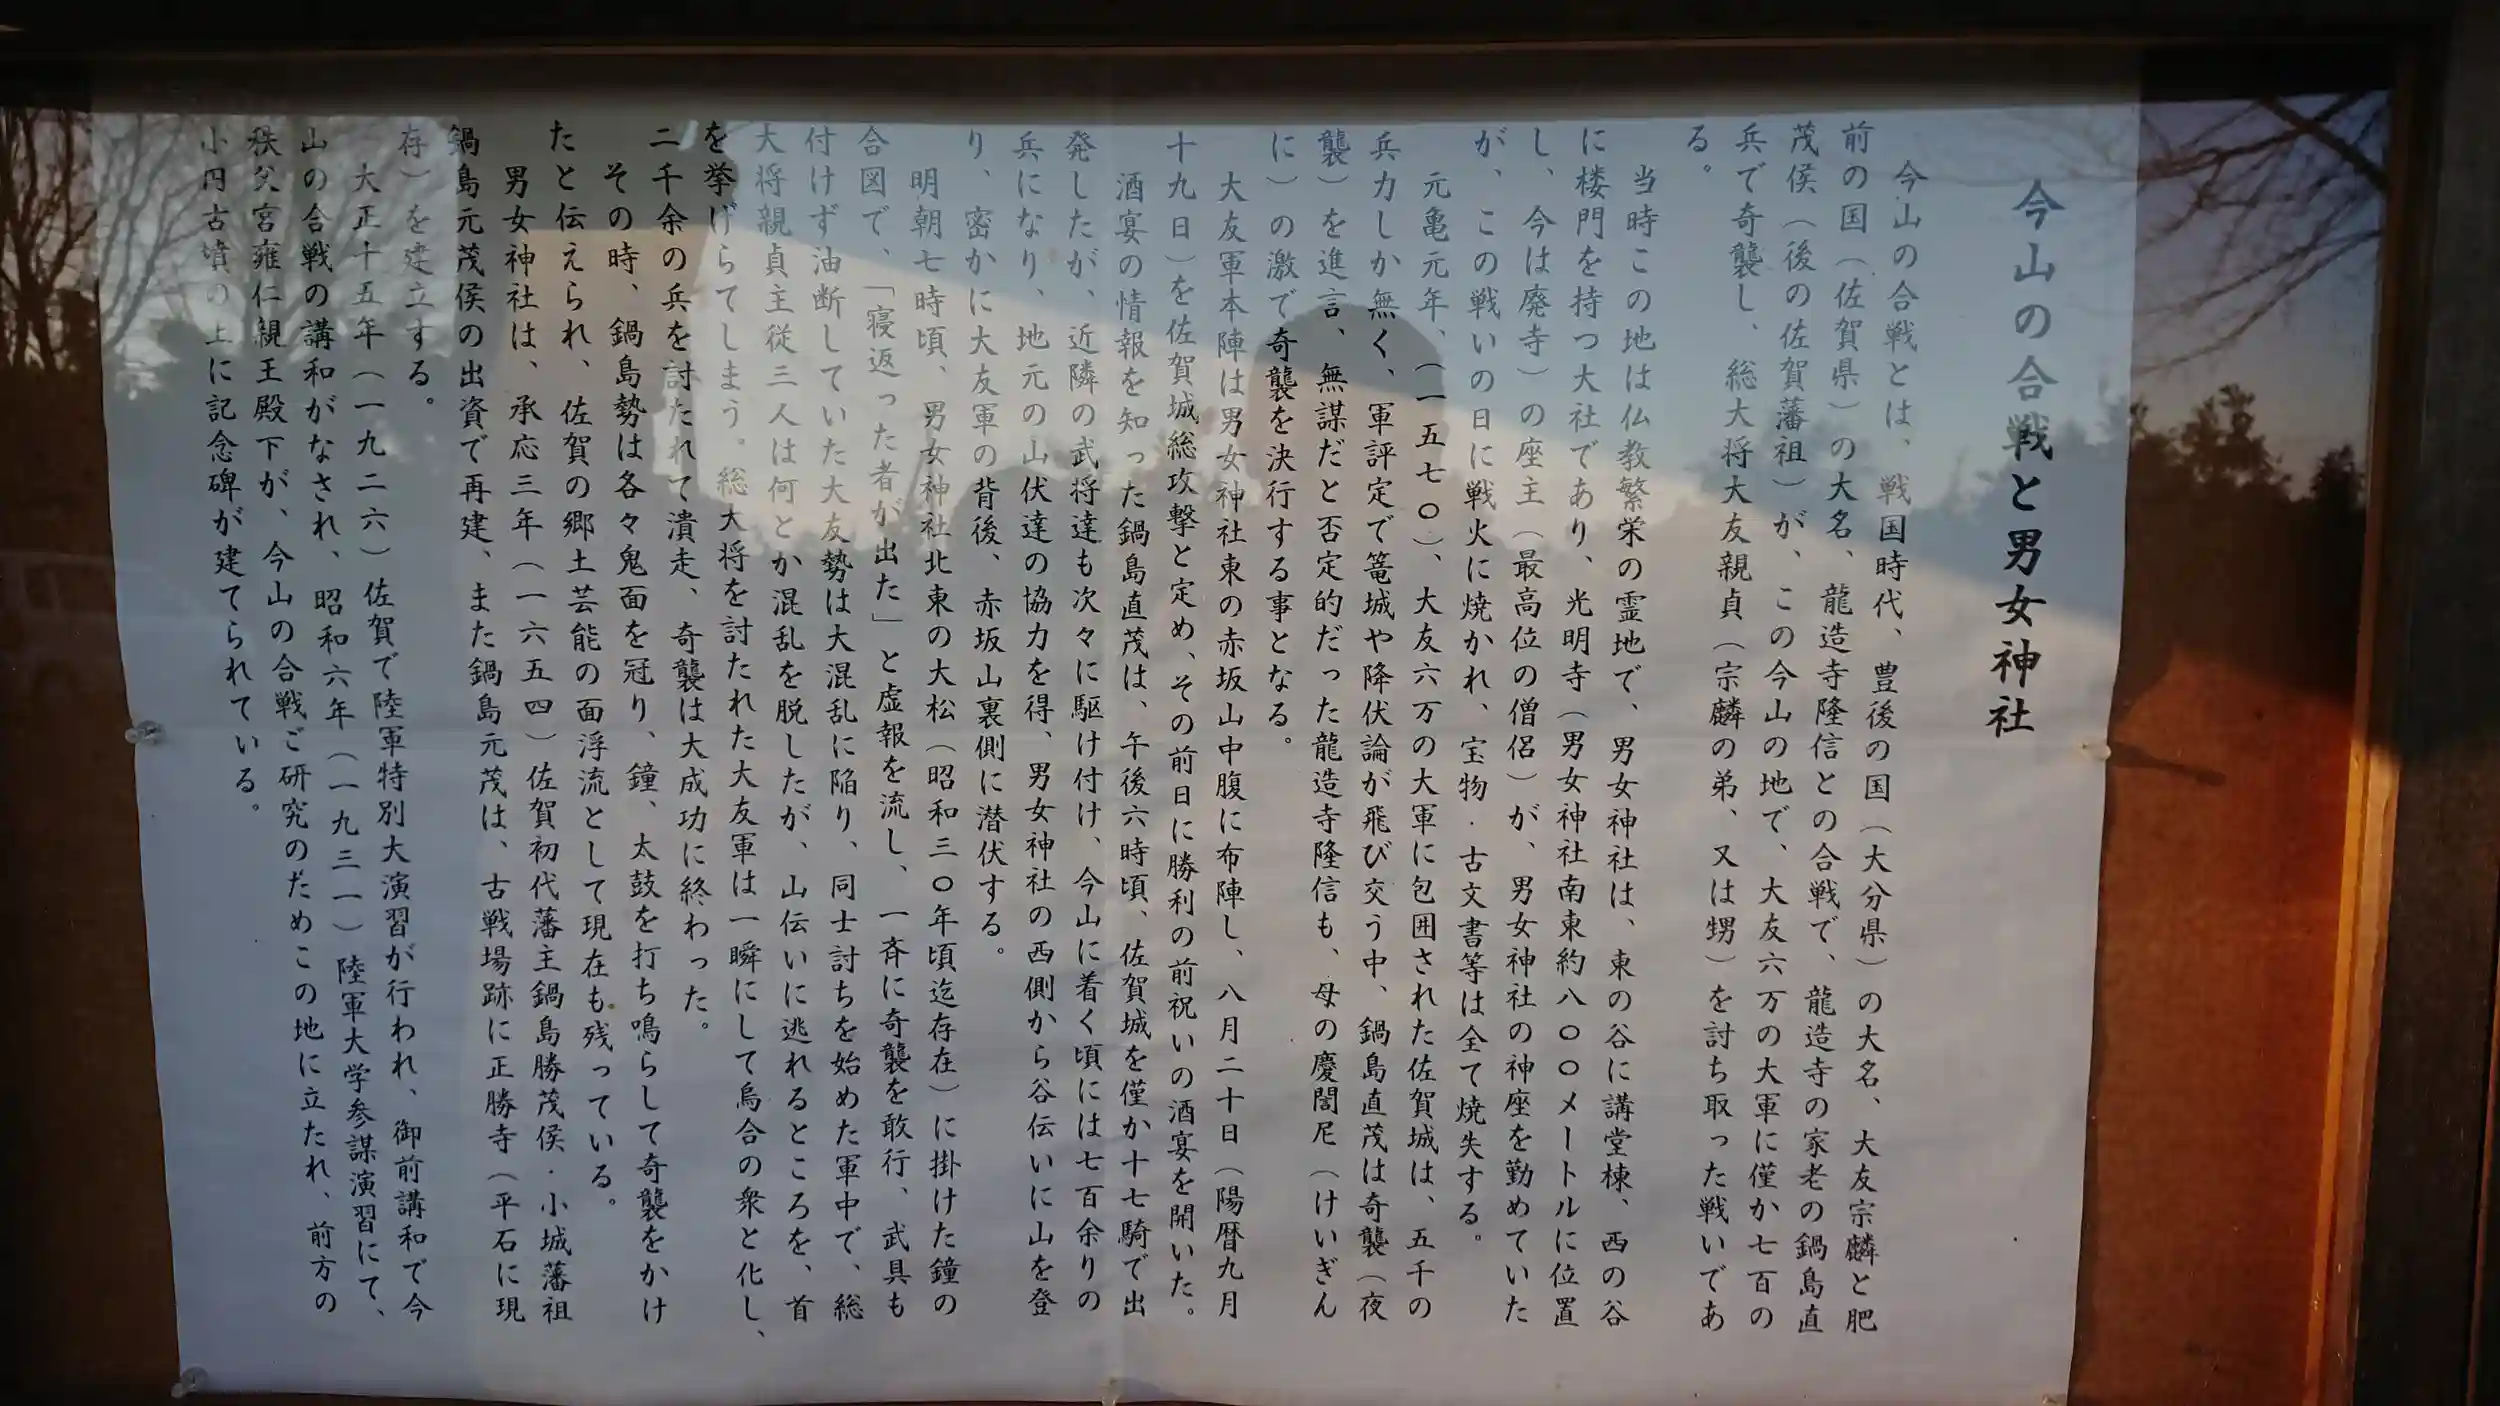 今山の合戦と男女神社
今山の合戦とは、戦国時代、豊後の国（大分県）の大名、大友宗麟と肥
前の国（佐賀県）の大名、龍造寺隆信との合戦で、龍造寺の家老の鍋島直
茂侯（後の佐賀藩祖）が、この今山の地で、大友六万の大軍に僅か七百の
兵で奇襲し、総大将大友親貞（宗麟の弟、又は甥）を討ち取った戦いであ
る。
当時この地は仏教繁栄の霊地で、男女神社は、東の谷に講堂棟、西の谷
に楼門を持つ大社であり、光明寺（男女神社南東約八〇〇メートルに位置
し、今は廃寺）の座主（最高位の僧侶）が、男女神社の神座を勤めていた
が、この戦いの日に戦火に焼かれ、宝物·古文書等は全て焼失する。
元亀元年、（一五七〇）、大友六万の大軍に包囲された佐賀城は、五千の
兵力しか無く、軍評定で篭城や降伏論が飛び交う中、鍋島直茂は奇襲（夜
襲）を進言、無謀だと否定的だった龍造寺隆信も、母の慶誾尼（けいぎん
に）の激で奇襲を決行する事となる。
大友軍本陣は男女神社東の赤坂山中腹に布陣し、八月二十日（陽暦九月
十九日）を佐賀城総攻撃と定め、その前日に勝利の前祝いの酒宴を開いた。
酒宴の情報を知った鍋島直茂は、午後六時頃、佐賀城を僅か十七騎で出
発したが、近隣の武将達も次々に駆け付け、今山に着く頃には七百余りの
兵になり、地元の山伏達の協力を得、男女神社の西側から谷伝いに山を登
り、密かに大友軍の背後、赤坂山裏側に潜伏する。
明朝七時頃、男女神社北東の大松（昭和三〇年頃迄存在）に掛けた鐘の
合図で、「寝返った者が出た」と虚報を流し、一斉に奇襲を敢行、武具も
付けず油断していた大友勢は大混乱に陥り、同士討ちを始めた軍中で、総
大将親貞主従三人は何とか混乱を脱したが、山伝いに逃れるところを、首
を挙げらてしまう。総大将を討たれた大友軍は一瞬にして烏合の衆と化し、
二千余の兵を討たれて潰走、奇襲は大成功に終わった。
その時、鍋島勢は各々鬼面を冠り、鐘、太鼓を打ち鳴らして奇襲をかけ
たと伝えられ、佐賀の郷土芸能の面浮流として現在も残っている。
男女神社は、承応三年（一六五四）佐賀初代藩主鍋島勝茂侯·小城藩祖
鍋島元茂侯の出資で再建、また鍋島元茂は、古戦場跡に正勝寺（平石に現
存）を建立する。
大正十五年（一九二六）佐賀で陸軍特別大演習が行われ、御前講和で今
山の合戦の講和がなされ、昭和六年（一九三一）陸軍大学参謀演習にて、
秩父宮雍仁親王殿下が、今山の合戦ご研究のためこの地に立たれ、前方の
小円古墳の上に記念碑が建てられている。